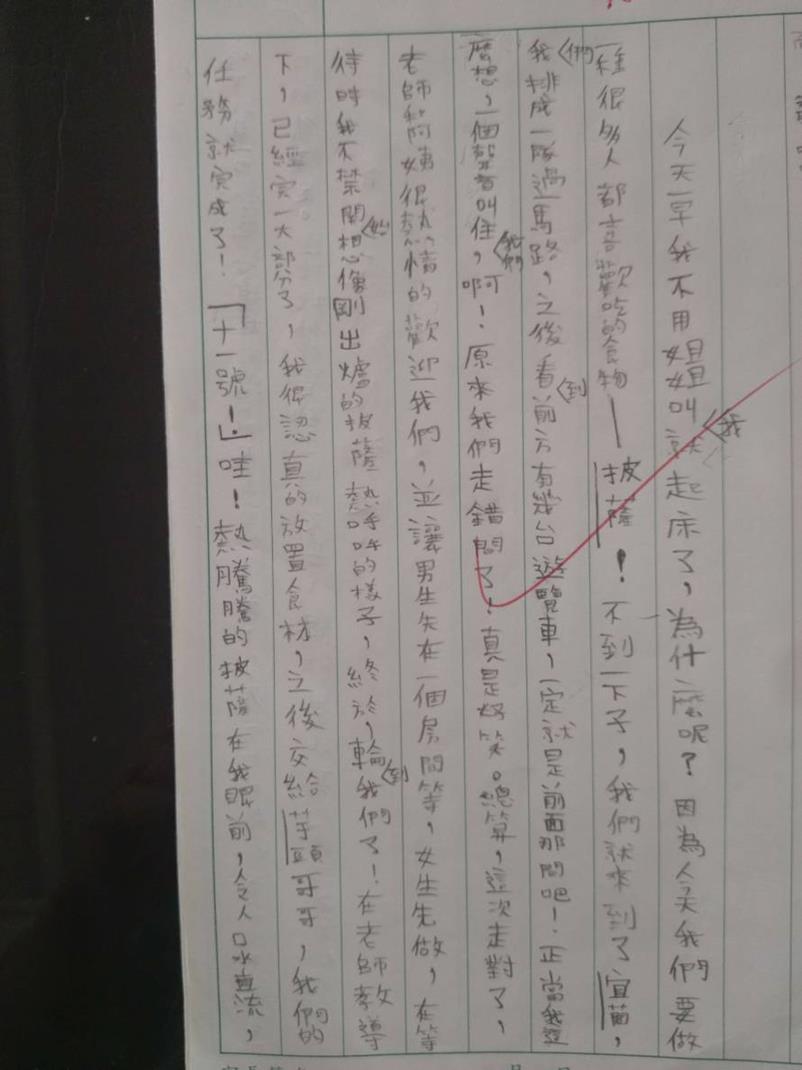 今天一早我不用姐姐叫我就起床了，為什麼呢？因為今天我們要做
一種很多人都喜歡吃的食物—披薩！不到一下子，我們就來到了宜苗，
我們排成一隊過馬路，之後看到前方有幾台遊覽車，一定就是前面那間吧！正當我這
麼想，一個聲音叫住我們，啊！原來我們走錯間了！真是好笑。總算，這次走對了，
老師和阿姨很熱情的歡迎我們，並讓男生先在一個房間等，女生先做，在等
待時我不禁開始想像剛出爐的披薩熱呼呼的樣子，終於，輪到我們了！在老師教導
下，已經完一大部分了，我很認真的放置食材，之後交給芋頭哥哥，我們的
任務就完成了！「十一號！」哇！熱騰騰的披薩在我眼前，令人口水直流，